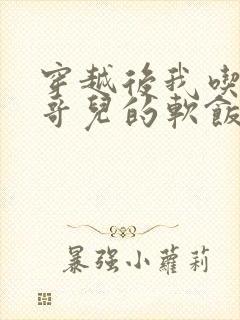 穿越後我喫
哥兒的軟飯
暴强小蘿莉